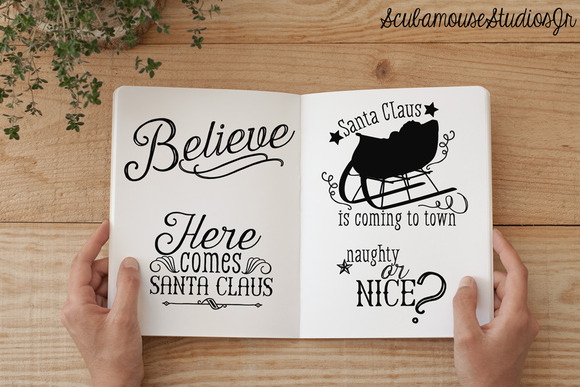 ScubamouseStudiosJr
Believe
Here
COMES
SANTA CLAUS
Santa Claus
is coming to town
naughty
or
NICE?